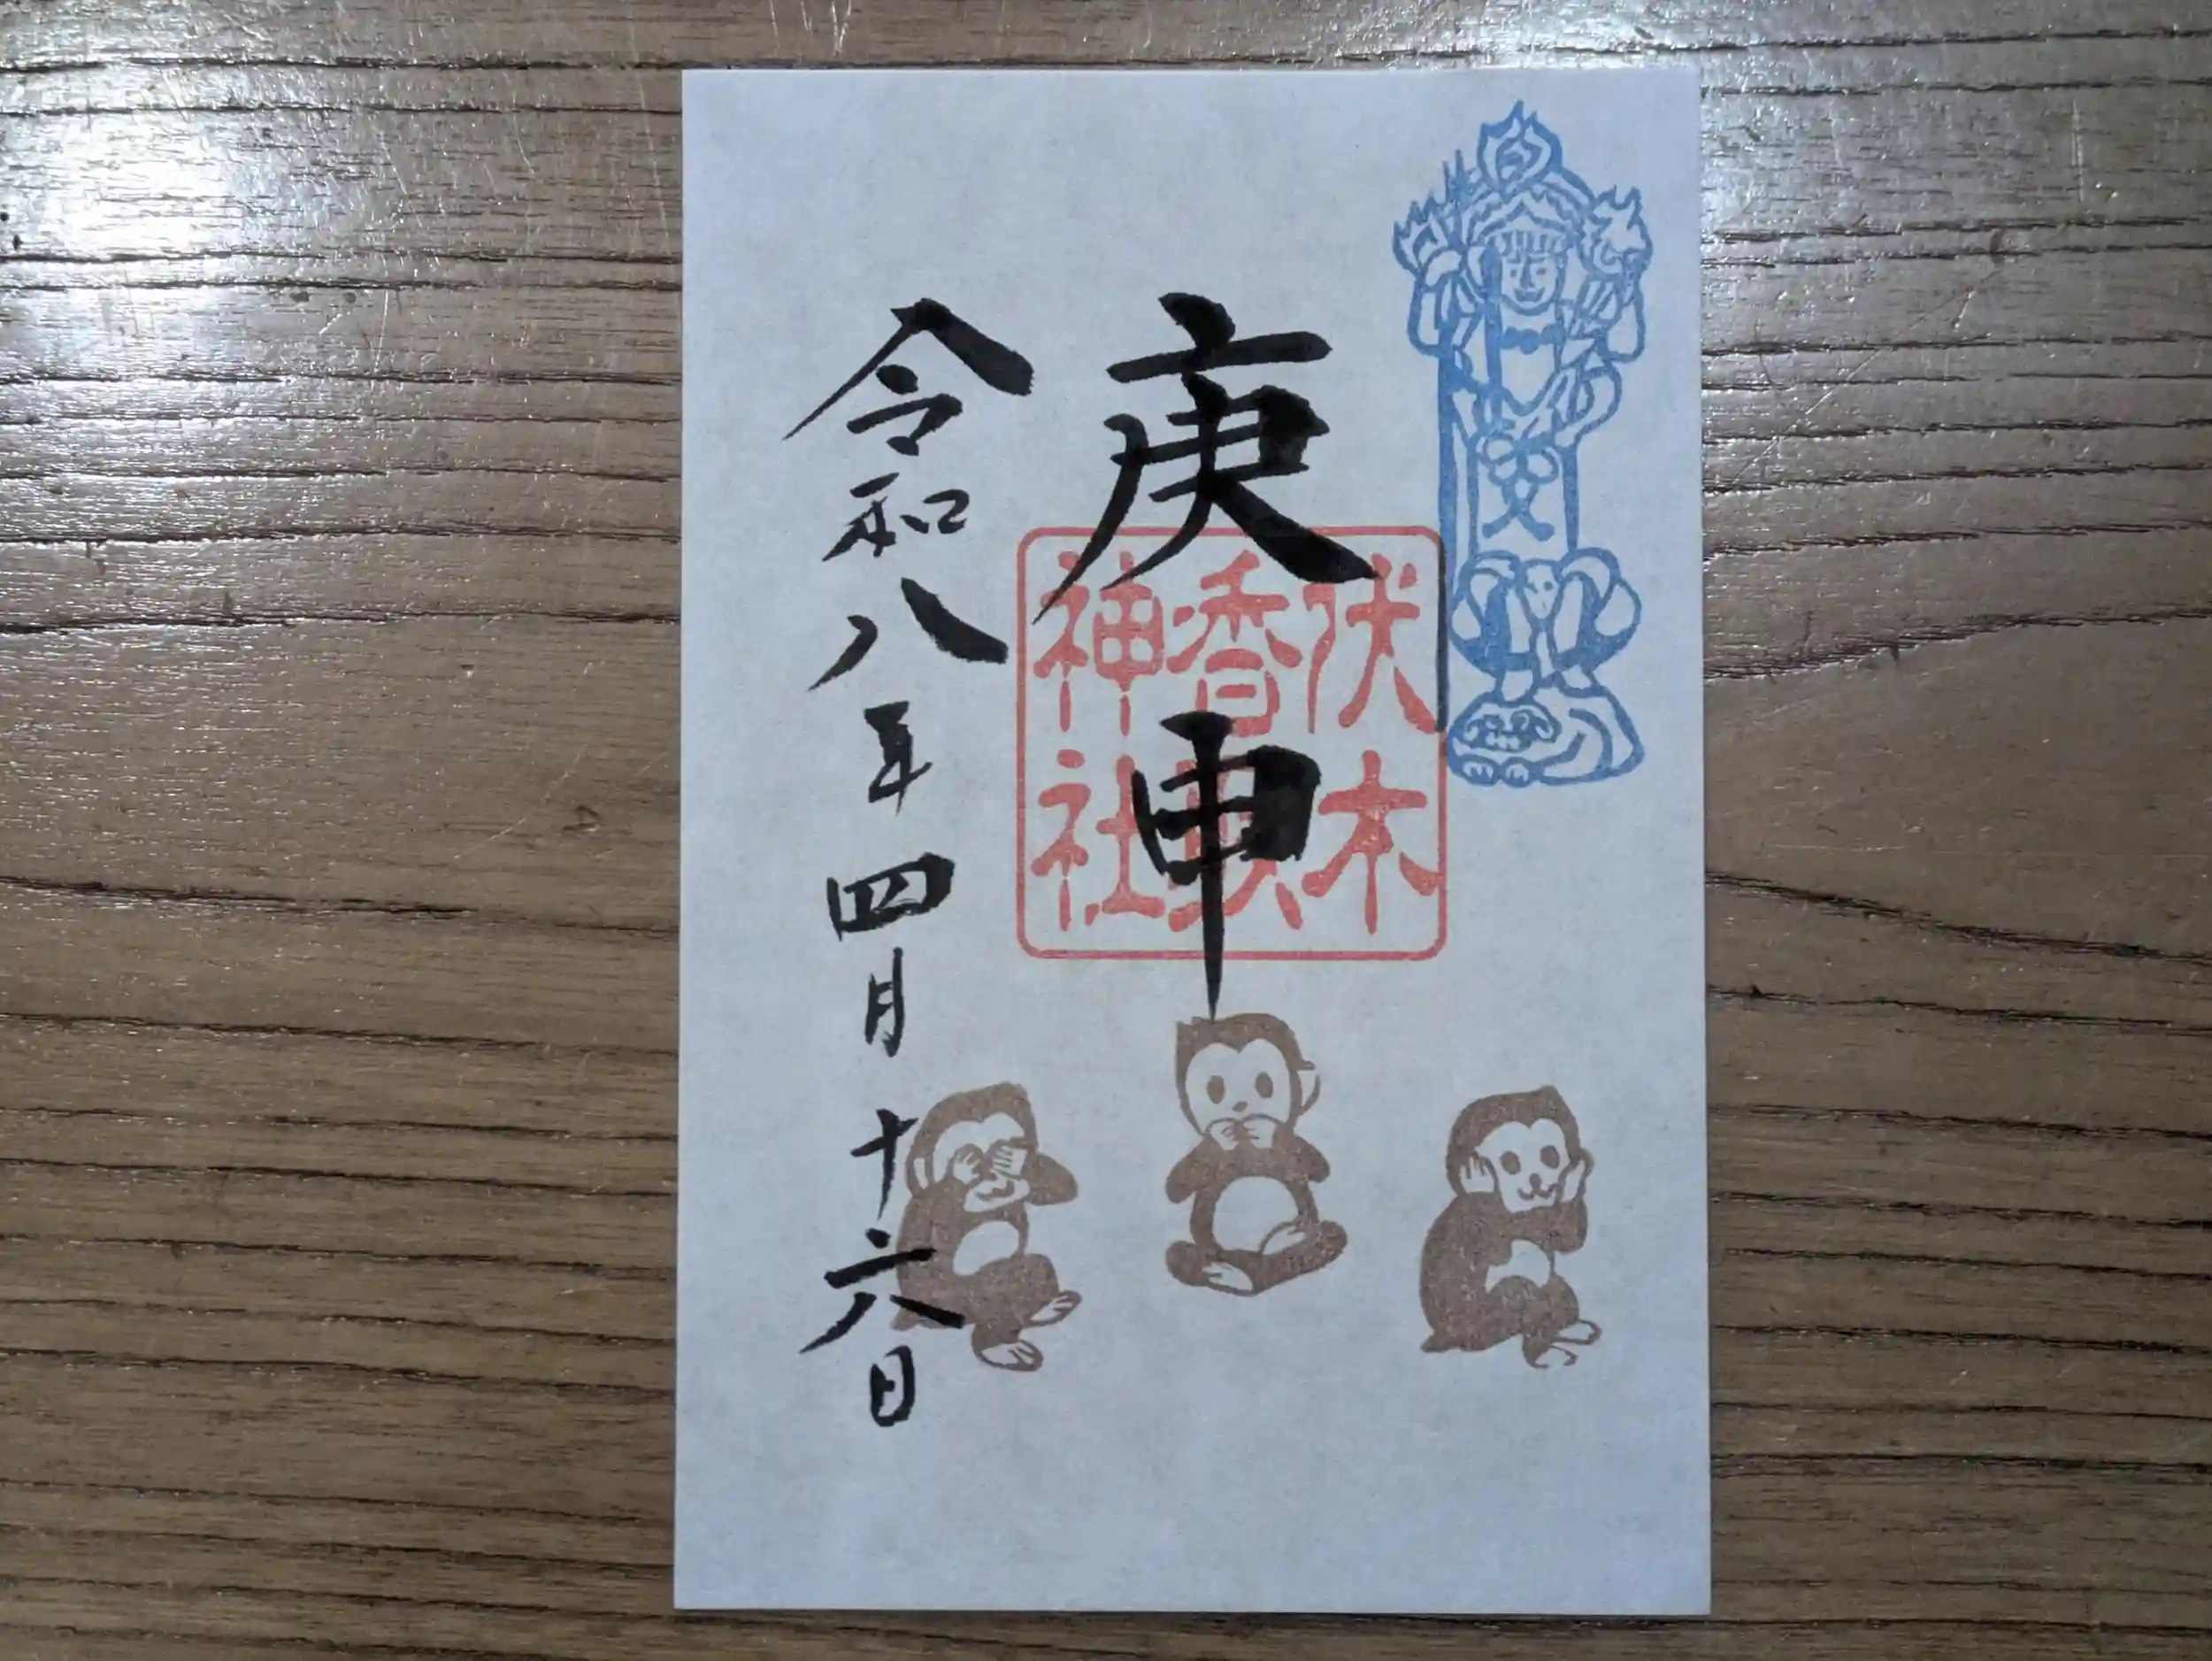 庚申
伏木
香取
神社
令和八年四月十六日